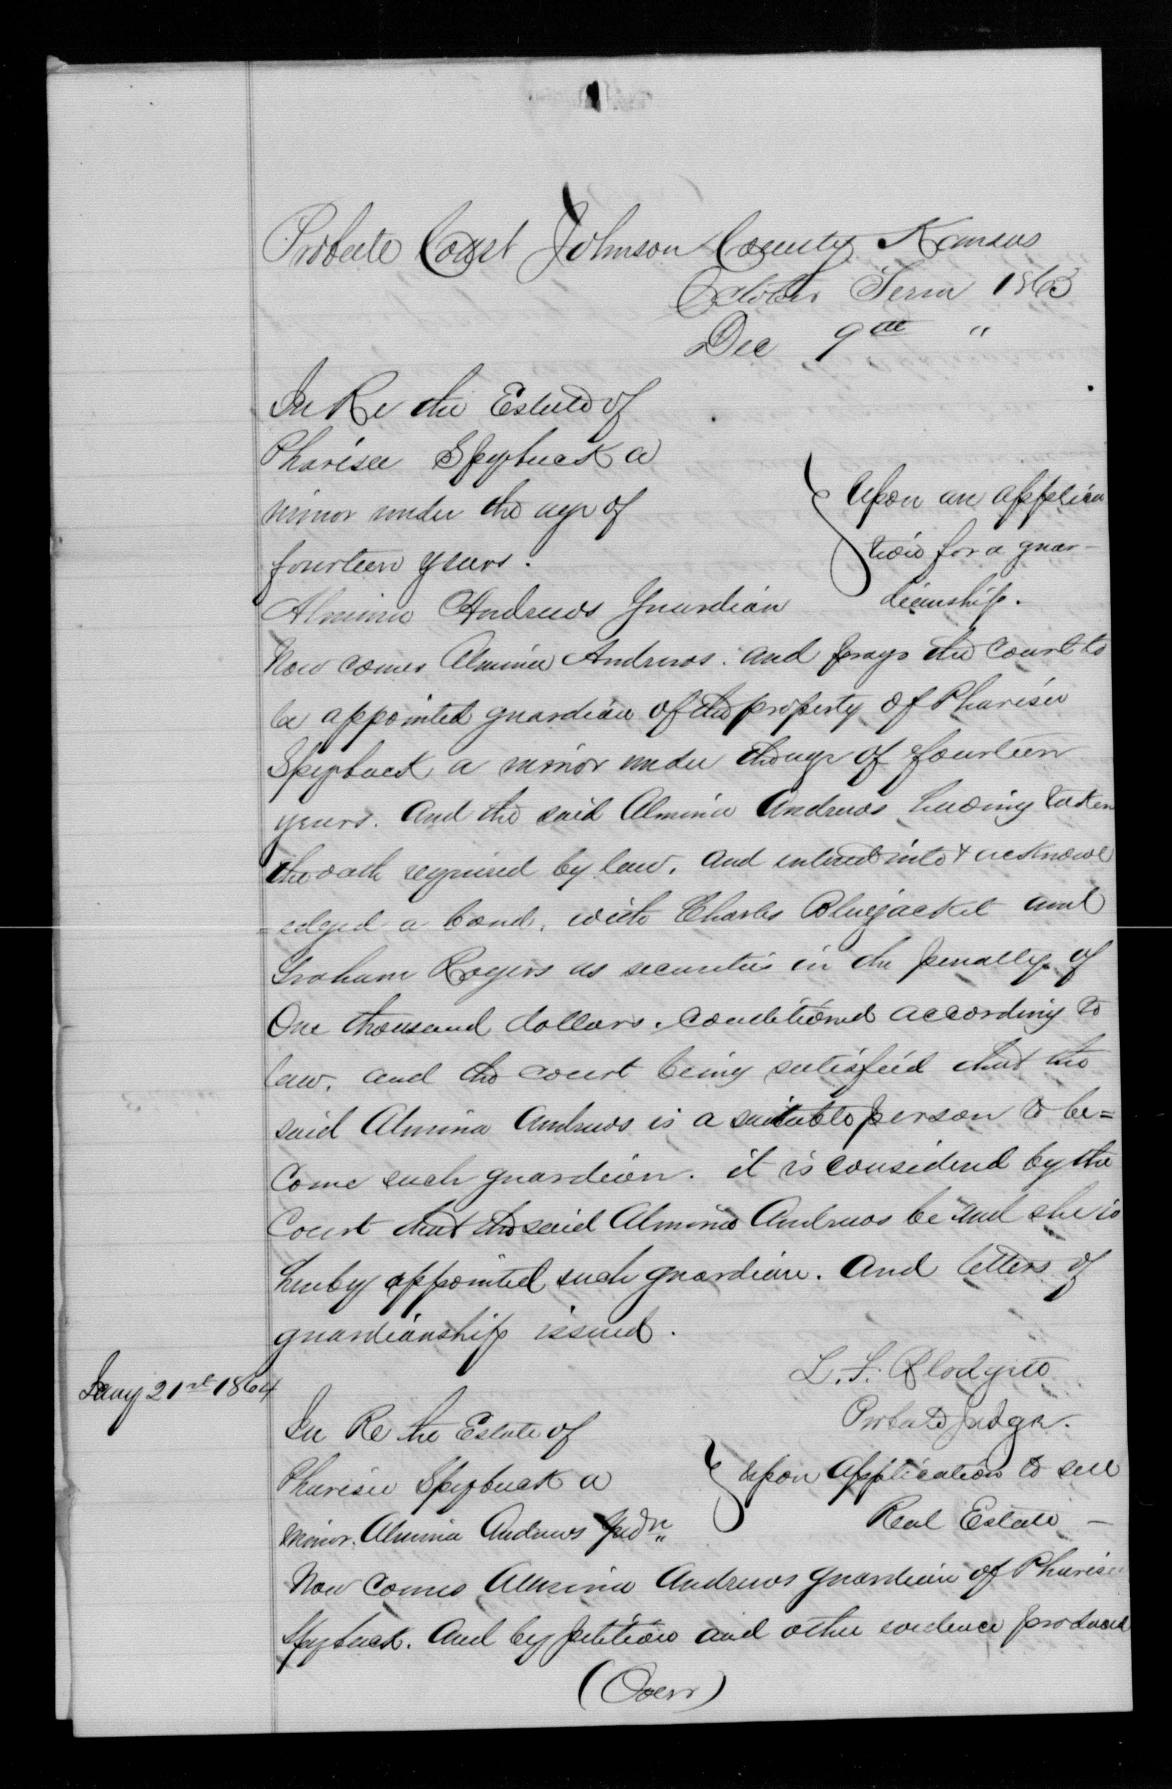 Probate Court Johnson County Kansas
October Term 1863
Dec 9th "
In Re the Estate of
Pharisee Spybuck a
minor under the age of
fourteen years.
Almina Andrews Guardian
} Upon an applica
tion for a guar-
dianship.
Now comes Almina Andrews. and prays the Court to
be appointed guardian of the property of Pharisee
Spybuck a minor under the age of fourteen
years. And the said Almina Andrews having taken
the oath required by law. and entered into & acknowl
=edged a bond. with Charles Bluejacket and
Graham Rogers as securities in the penalty of
One thousand dollars. Conditioned according to
law. and the court being satisfied that the
said Almina Andrews is a suitable person to be=
Come such guardian. it is considered by the
Court that the said Almina Andrews be and she is
hereby appointed such guardian. And letters of
guardianship issued.
L. S. Blodgett
Probate Judge.
Jany 21st 1864
In Re the Estate of
Pharisee Spybuck a
minor. Almina Andrews Gudn
} Upon Application to sell
Real Estate —
Now comes Almina Andrews guardian of Pharisee
Spybuck. And by petition and other evidence produced
(Over)